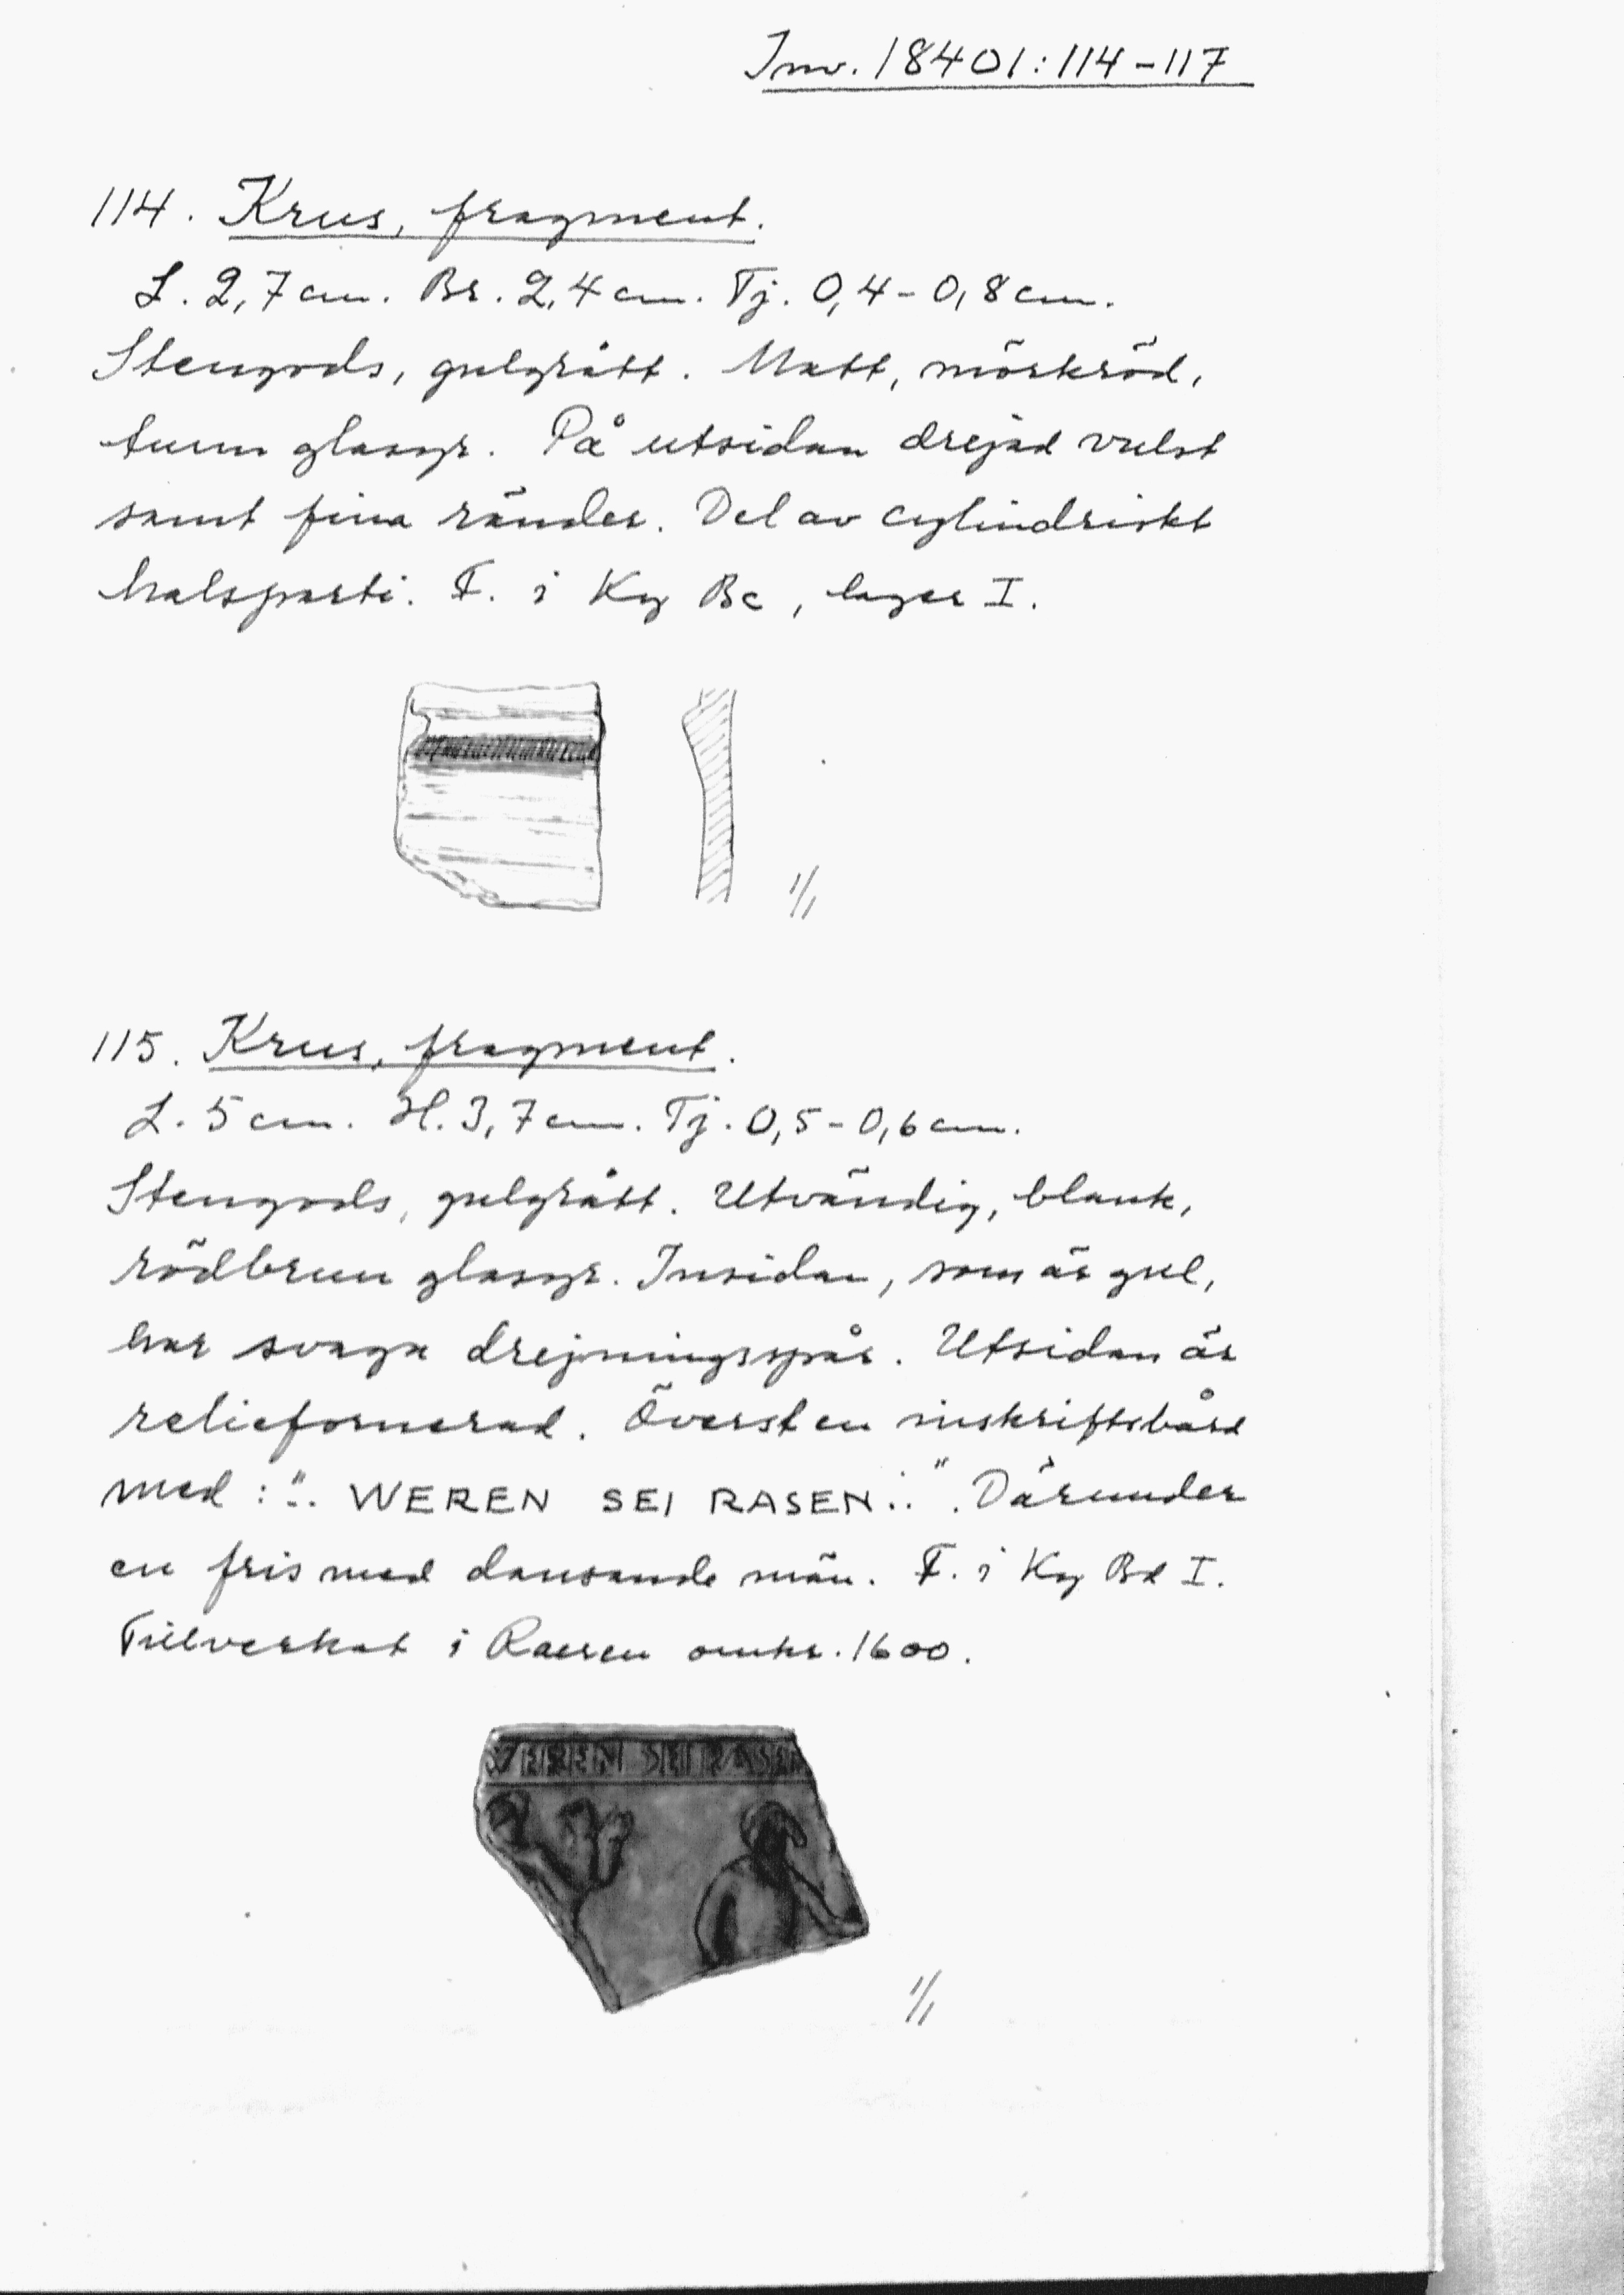 Inv. 18401:114-117
114. Krus, fragment.
L. 2,7 cm. Br. 2,4 cm. Tj. 0,4-0,8 cm.
Stengods, gulgrått. Matt, mörkröd,
tunn glasyr. På utsidan drejad vulst
samt fina ränder. Del av cylindriskt
halsparti. F. i Kv Bc, lager I.
1/1
115. Krus, fragment.
L. 5 cm. H. 3,7 cm. Tj. 0,5-0,6 cm.
Stengods, gulgrått. Utvändig, blank,
rödbrun glasyr. Insidan, som är gul,
har svaga drejningsspår. Utsidan är
reliefornerad. Överst en inskriftsbård
med: ".. WEREN SEI RASEN..". Därunder
en fris med dansande män. F. i Kv Bd I.
Tillverkat i Raeren omkr. 1600.
WEREN SEI RASEN
1/1